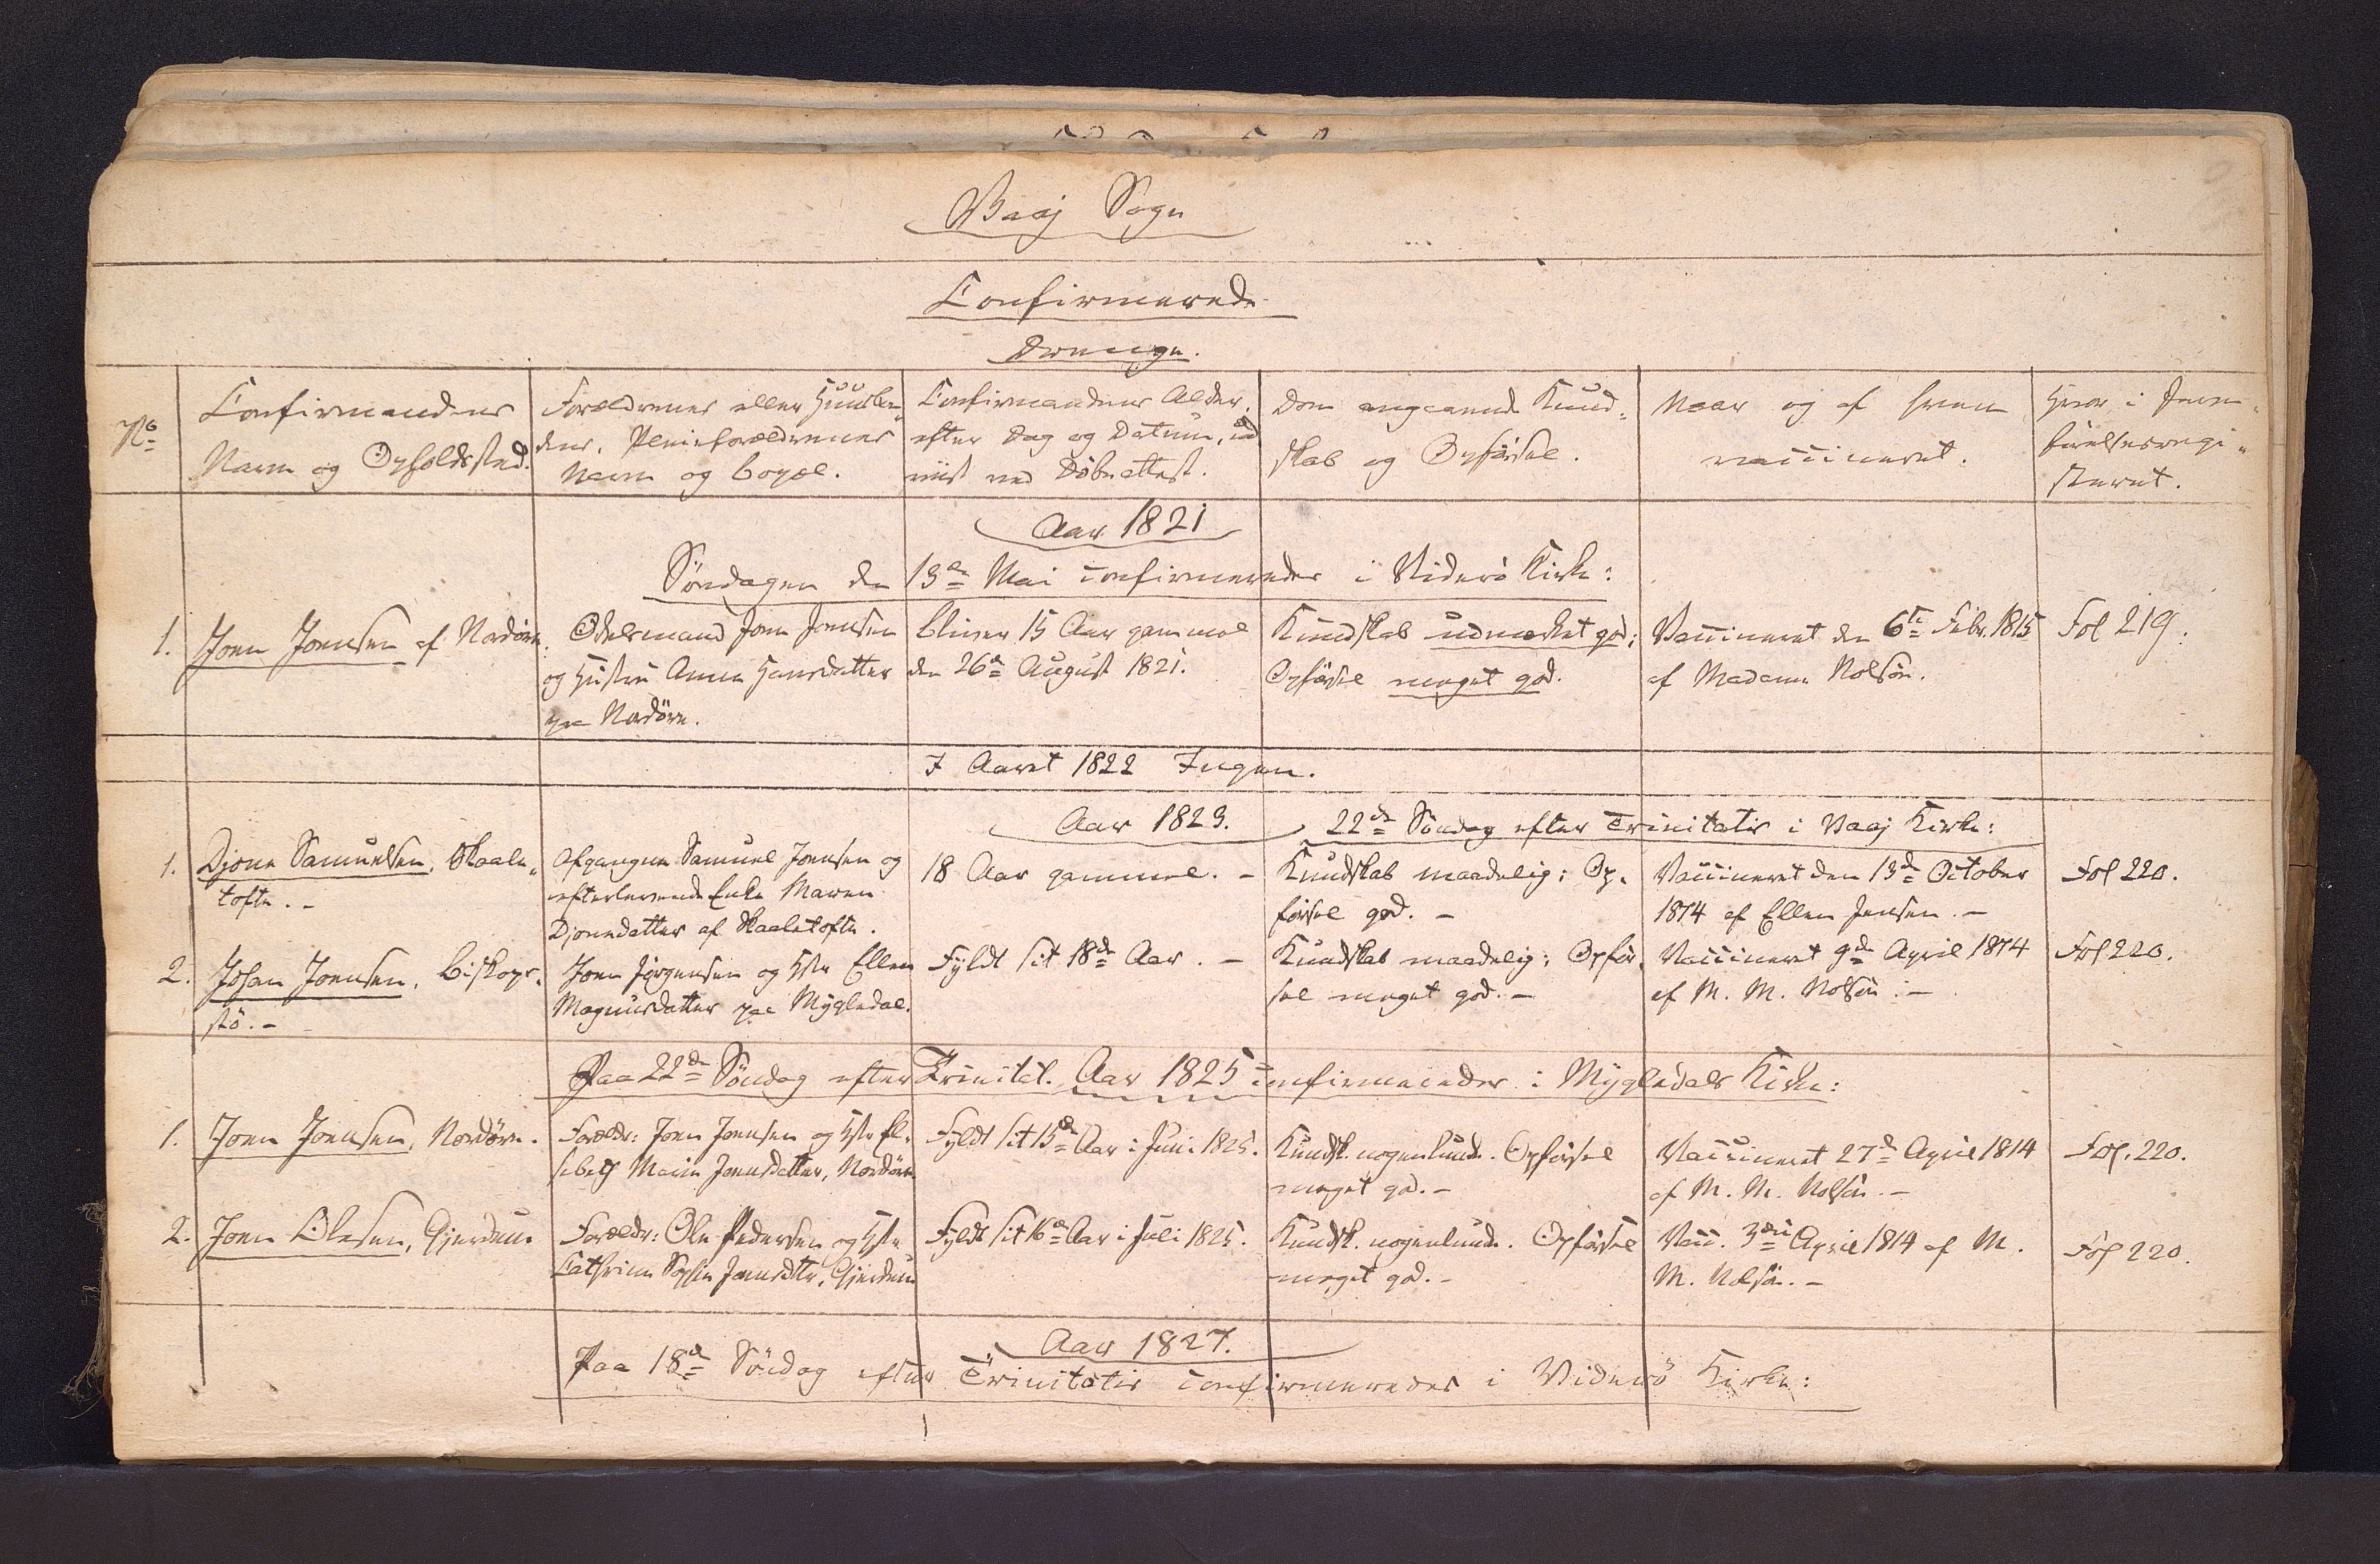 Vaaj Sogn
Confirmerede
Drenge.
No
Confirmandens
Navn og Opholdsted.
Forældrenes eller Huusbon„
dens, Pleieforældrenes
Navn og bopæl.
Confirmandens Alder,
efter Dag og Datum, ud
viist ved Döbeattest.
Dom angaaende Kund„
skab og Opförsel.
Naar og af hvem
vaccineret.
Hvor i Jevn„
förelsesregi„
steret.
Aar 1821
Söndagen den 13de Mai confirmeredes i Viderö Kirke:
1. Joen Joensen af Nordöre.
Odelsmand Joen Joensen
og Hustru Anna Hansdatter
paa Nordöre.
bliver 15 Aar gammel
den 26de August 1821.
Kundskab udmærket god;
Opförsel meget god.
Vaccineret den 6te Febr. 1815
af Madame Nolsön.
Fol 219.
I Aaret 1822 Ingen.
Aar 1823. 22de Söndag efter Trinitatis i Vaaj Kirke:
1. Djone Samuelsen, Skaale„
tofte. -
Afgangne Samuel Joensen og
efterlevende Enke Maren
Djonedatter af Skaaletofte.
18 Aar gammel. -
Kundskab maadelig; Op„
försel god. -
Vaccineret den 13de October
1814 af Ellen Jensen. -
Fol 220.
2. Johan Joensen, Biskops„
stö. -
Joen Jörgensen og Hstr Ellen
Magnusdatter paa Mygledal.
Fyldt sit 18de Aar. -
Kundskab maadelig; Opför„
sel meget god. -
Vaccineret 9de April 1814
af M. M. Nolsön. -
Fol 220.
Paa 22de Söndag efter Trinitat. Aar 1825 confirmeredes i Mygledals Kirke:
1. Joen Joensen, Nordöre.
Forældr: Joen Joensen og Hstr El„
sebeth Marie Joensdatter, Nordöre
Fyldt sit 15de Aar i Juni 1825.
Kundsk. nogenlunde. Opförsel
meget god. -
Vaccineret 27de April 1814
af M. M. Nolsön. -
Fol. 220.
2. Joen Olesen, Gjerdum
Forældr: Ole Pedersen og Hstr
Cathrine Sophie Joensdttr, Gjerdum
Fyldt sit 16de Aar i Juli 1825.
Kundsk. nogenlunde. Opförsel
meget god. -
Vacc. 3die April 1814 af M.
M. Nolsön. -
Fol 220.
Aar 1827.
Paa 18de Söndag efter Trinitatis confirmeredes i Viderö Kirke: